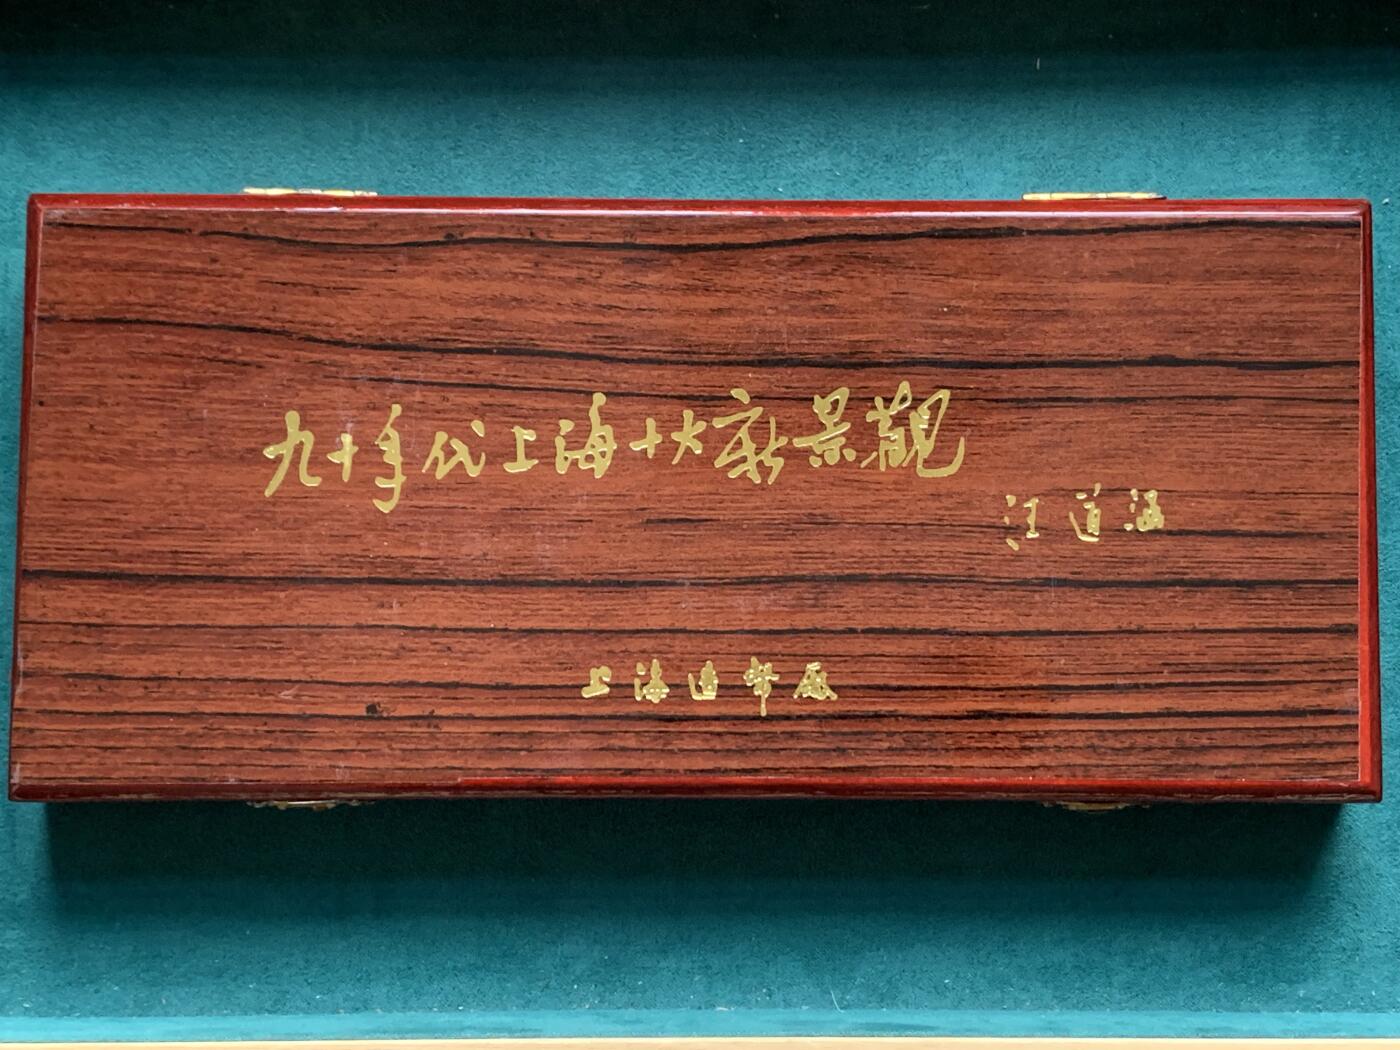 九十年代上海十大新景觀
汪道涵
上海造幣廠